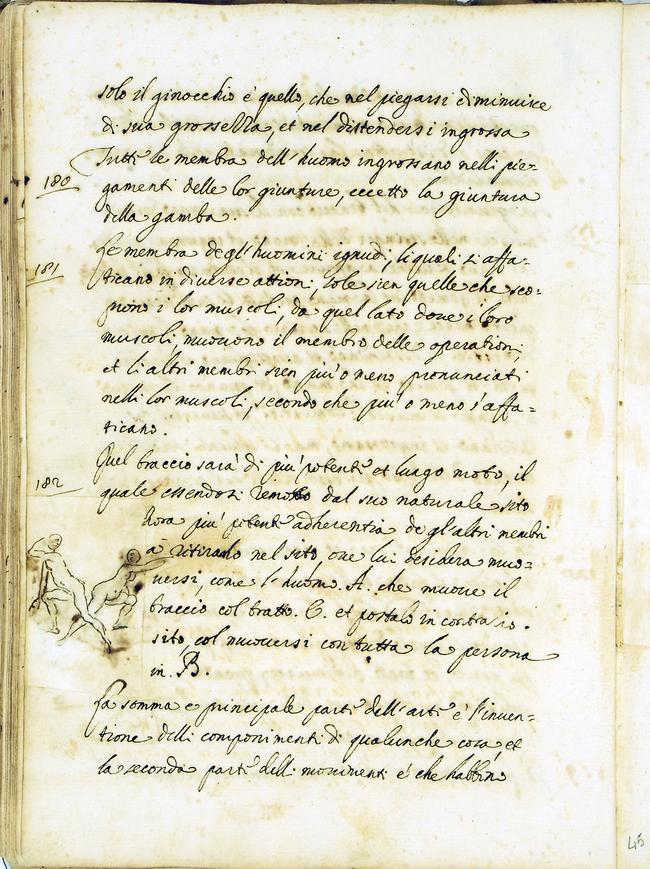 solo il ginocchio é quello, che nel piegarsi diminuisce
di sua grossezza, et nel distendersi ingrossa
180
Tutte le membra dell'huomo ingrossano nelli pie-
gamenti delle lor giunture, eccetto la giuntura
della gamba.
181
Le membra degl'huomini ignudi, li quali si affa-
ticano in diverse attioni, sole sien quelle che sco-
prono i lor muscoli, da quel lato dove i loro
muscoli, muovono il membro delle operationi,
et li altri membri sien piu o meno pronunciati
nelli lor muscoli, secondo che piu o meno s'affa-
ticano.
182
Quel braccio sara di piu potente et lungo moto, il
quale essendosi remosso dal suo naturale sito
hara piu potente adherentia de gl'altri membri
a ritirarlo nel sito ove lui desidera muo-
versi, come l'huomo. A. che muove il
braccio col tratto. C. et portalo in contrario.
sito col muoversi con tutta la persona
in. B.
La somma e principale parte dell'arte é l'inven-
tione delli componimenti di qualunche cosa, et
la seconda parte delli movimenti é che habbino
45